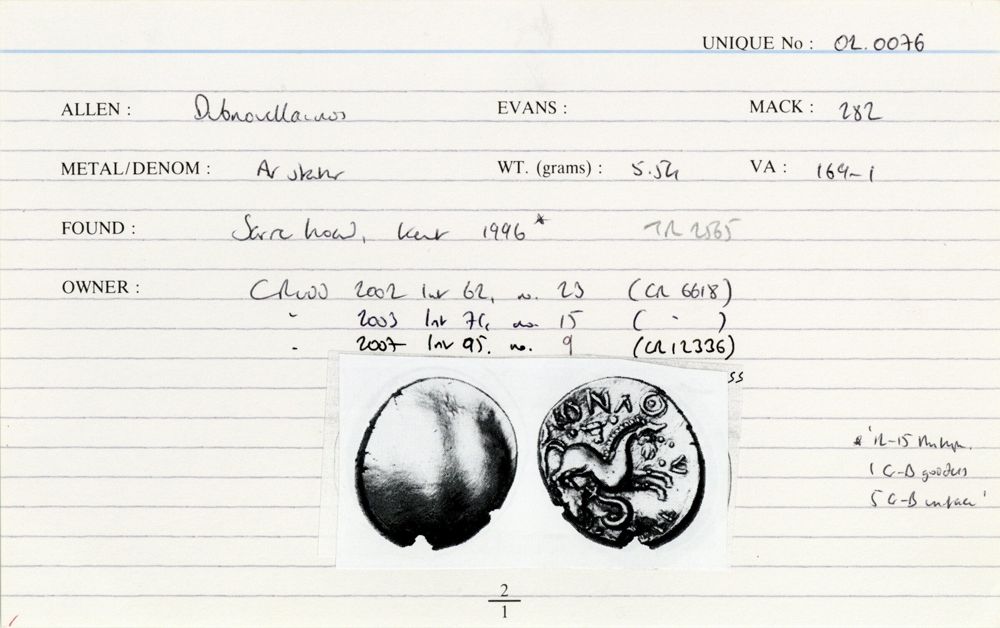 UNIQUE No : 02.0076
ALLEN : Dubnovellaunos EVANS : MACK : 282
METAL/DENOM : Av stater WT. (grams) : 5.54 VA : 169-1
FOUND : Sarre hoard, Kent 1996 * TR 2565
OWNER : CRUDD 2002 list 62, no. 23 (CR 6618)
" 2003 list 71, no. 15 ( " )
" 2007 list 95, no. 9 (CR 12336)
ss
* '12-15
1 G-B
5 G-B '
2
1